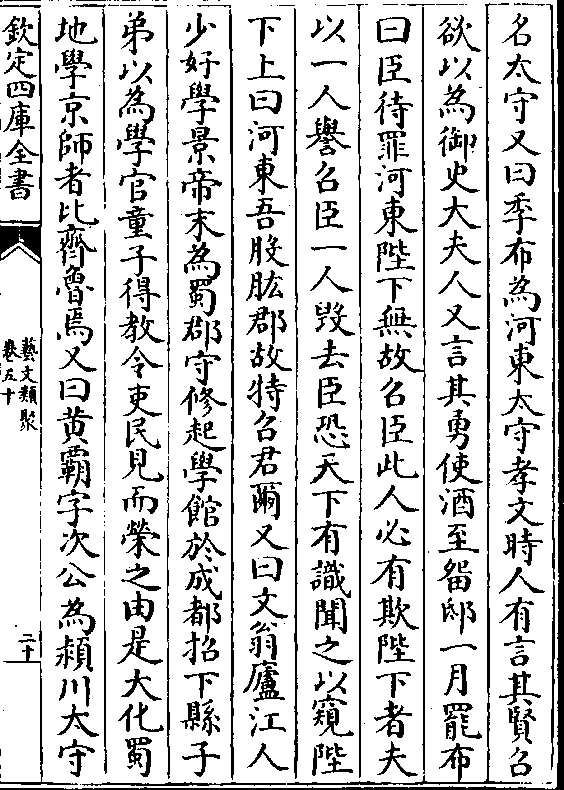 名太守又曰季布為河東太守孝文時人有言其賢召
欲以為御史大夫人又言其勇使酒至留邸一月罷布
曰臣待罪河東陛下無故召臣此人必有欺陛下者夫
以一人譽召臣一人毀去臣恐天下有識聞之以窺陛
下上曰河東吾股肱郡故特召君爾又曰文翁廬江人
少好學景帝末為蜀郡守修起學館於成都招下縣子
弟以為學官童子得教令吏民見而榮之由是大化蜀
地學京師者比齊魯焉又曰黄霸字次公為潁川太守
欽定四庫全書
藝文類聚
卷五十
二十